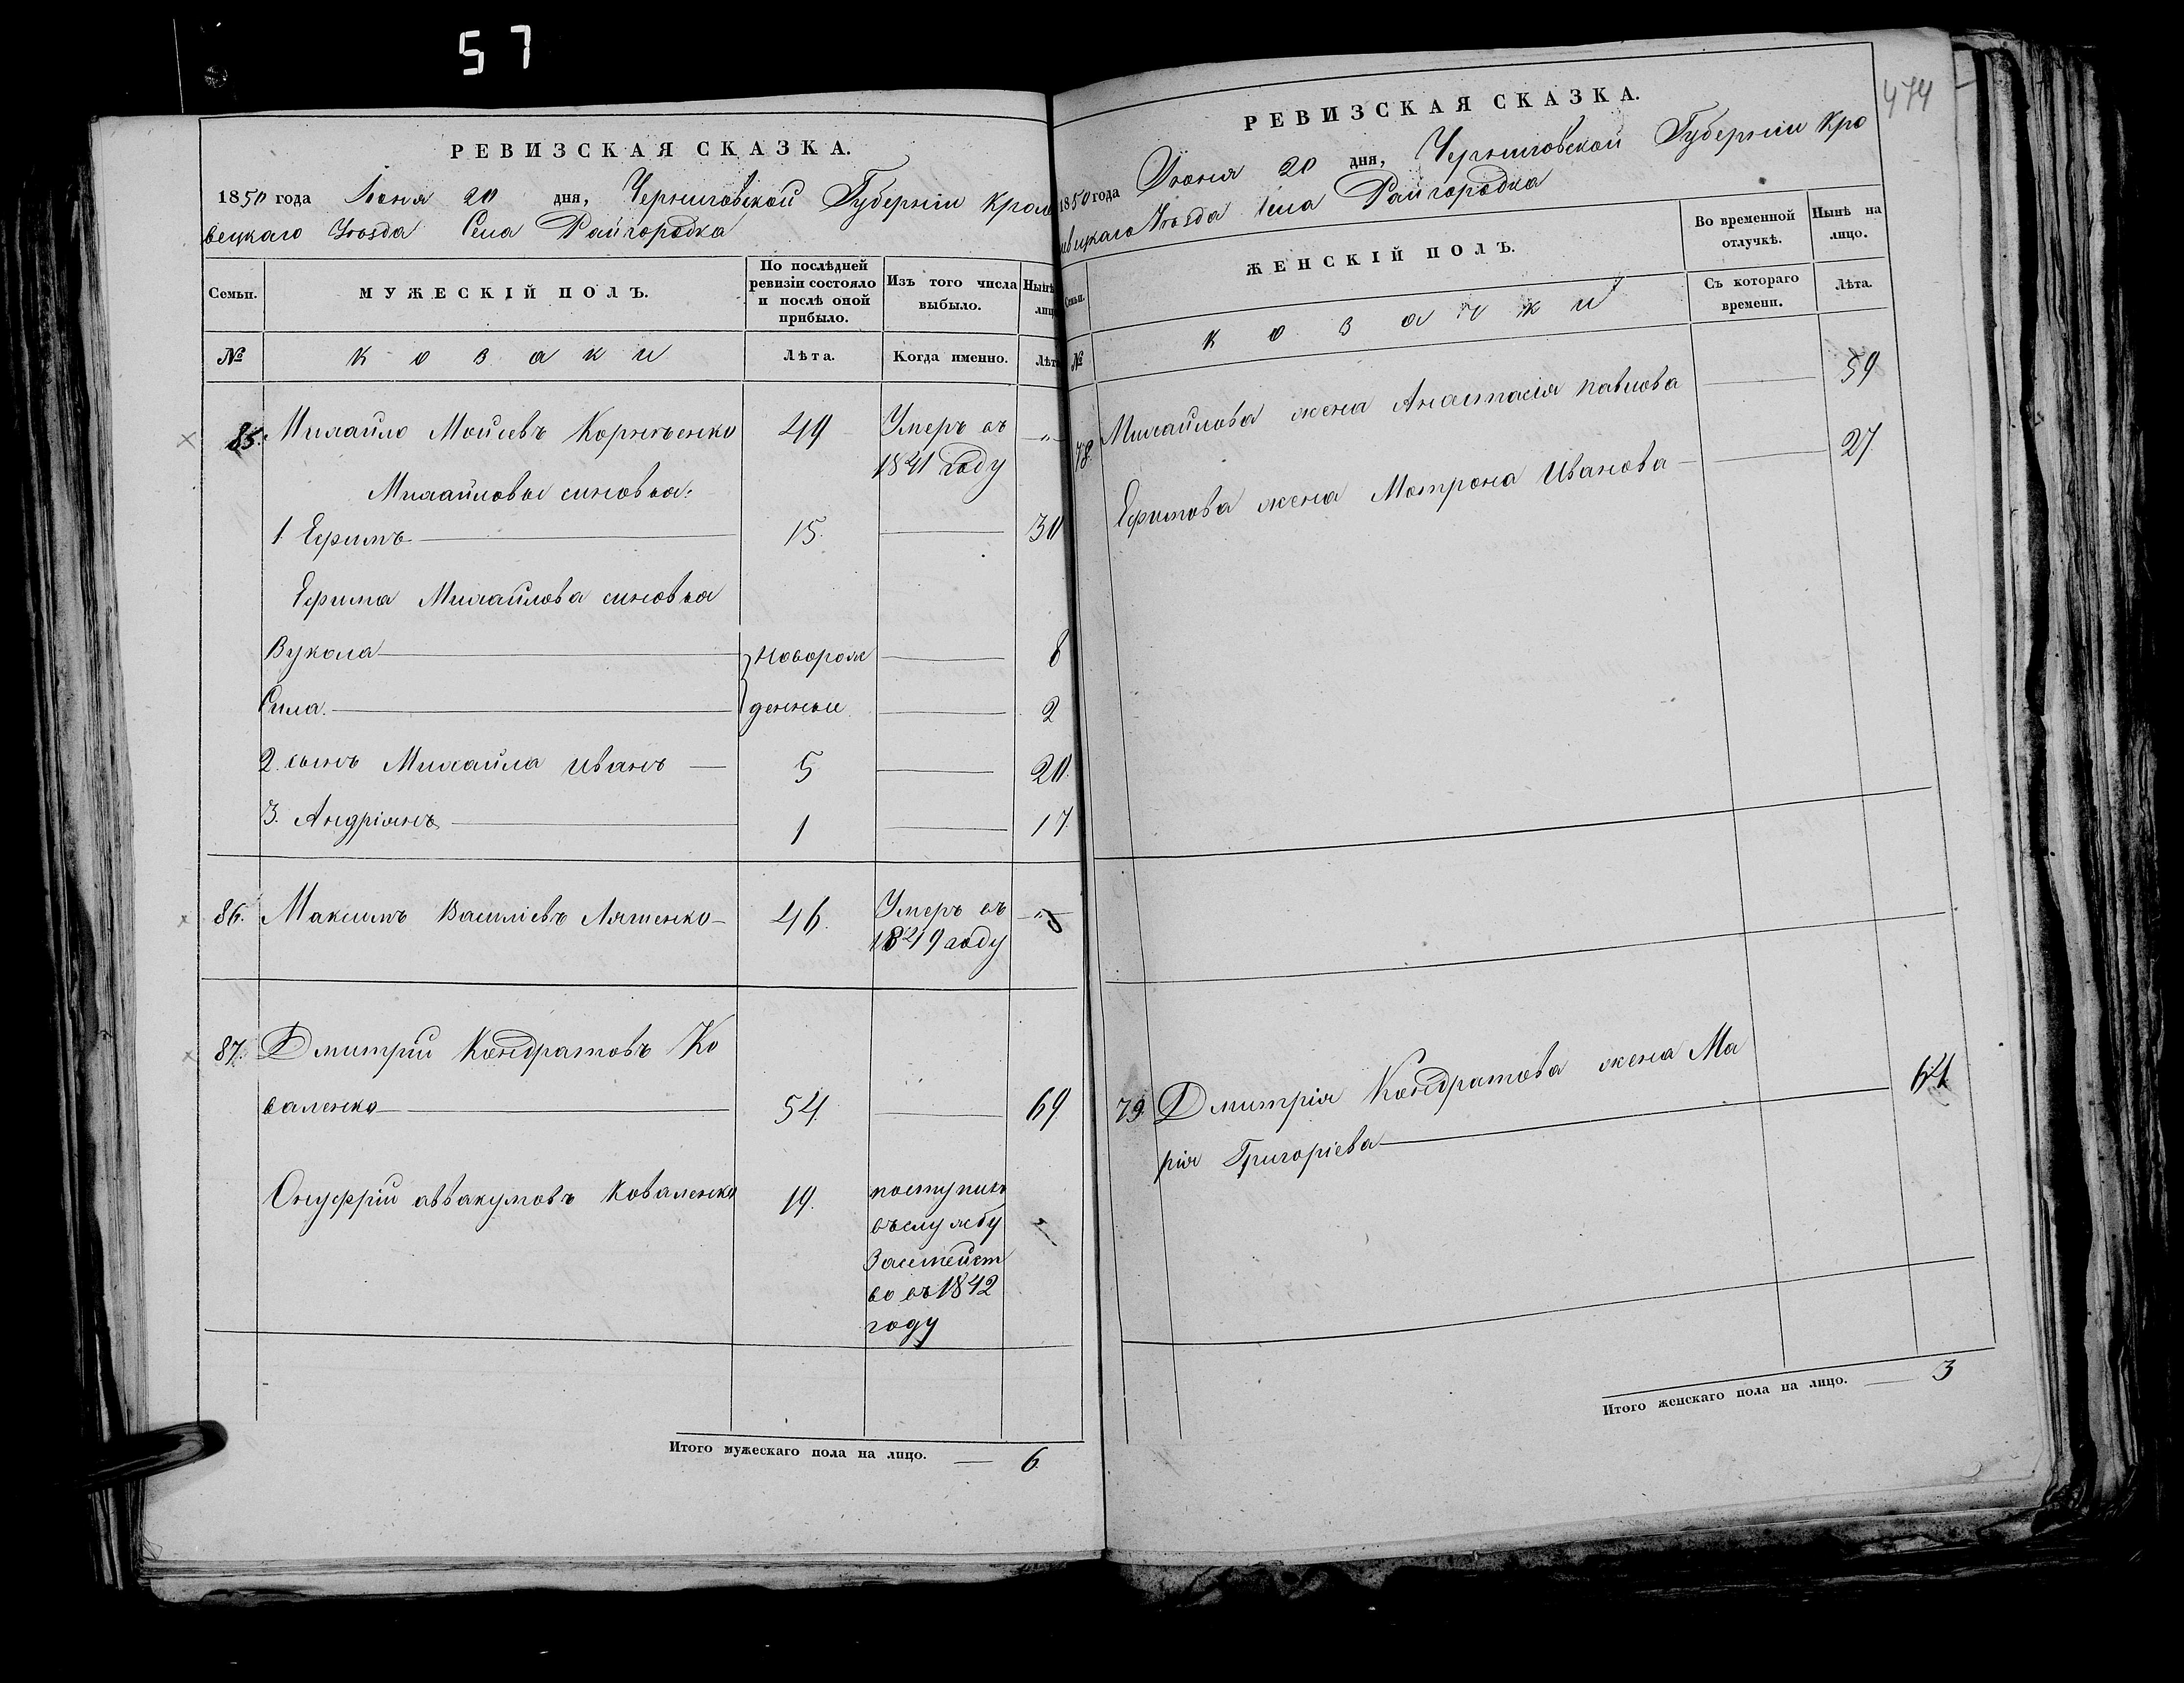 57
РЕВИЗСКАЯ СКАЗКА.
1850 года Июня 20 дня, Черниговской Губерніи Кроле
вецкаго Уѣзда Села Райгородка
Семьи.
МУЖЕСКІЙ ПОЛЪ.
По послѣдней ревизіи состояло и послѣ оной прибыло.
Изъ того числа выбыло.
Нынѣ лицо
№
козаки
Лѣта.
Когда именно.
Лѣт
85. Михайло Мойсевъ Корнѣенко 49 Умеръ въ „
1841 году
Михайловы синовья:
1. Ефимъ 15. 30
Ефима Михайлова синовья
Вукола новорож 8
Сила. денные 2
2. сынъ Михайла Иванъ 5 20.
3. Андріянъ 1 17.
86. Максимъ Василіевъ Ляшенко 46. Умеръ въ „
1849 году
87. Дмитрій Кондратовъ Ко
валенко 54. 69
Онуфрій аввакумовъ Коваленко 19. поступилъ
въ службу
Заместейст
во въ 1842
году
Итого мужескаго пола на лицо. 6.
474
РЕВИЗСКАЯ СКАЗКА.
1850 года Июня 20 дня, Черниговской Губерніи Кро
левецкаго Уѣзда Села Райгородка
Семьи.
ЖЕНСКІЙ ПОЛЪ.
Во временной отлучкѣ.
Нынѣ на лицо.
Съ котораго времени.
Лѣта.
№
козачки
78. Михайлова жена Анастасія Павлова 59
Ефимова жена Мотрона Иванова 27.
79. Дмитрія Кондратова жена Ма
рія Григоріева 64
Итого женскаго пола на лицо. 3